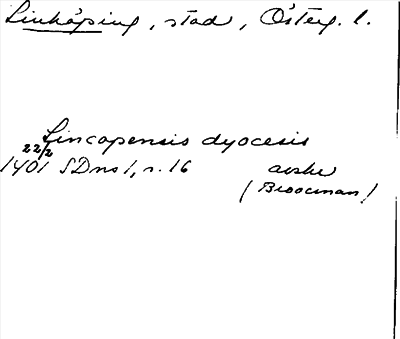 Linköping, stad, Österg. l.
Lincopensis dyocesis
22/2
1401 SDns 1, s. 16 avskr
(Broocman)